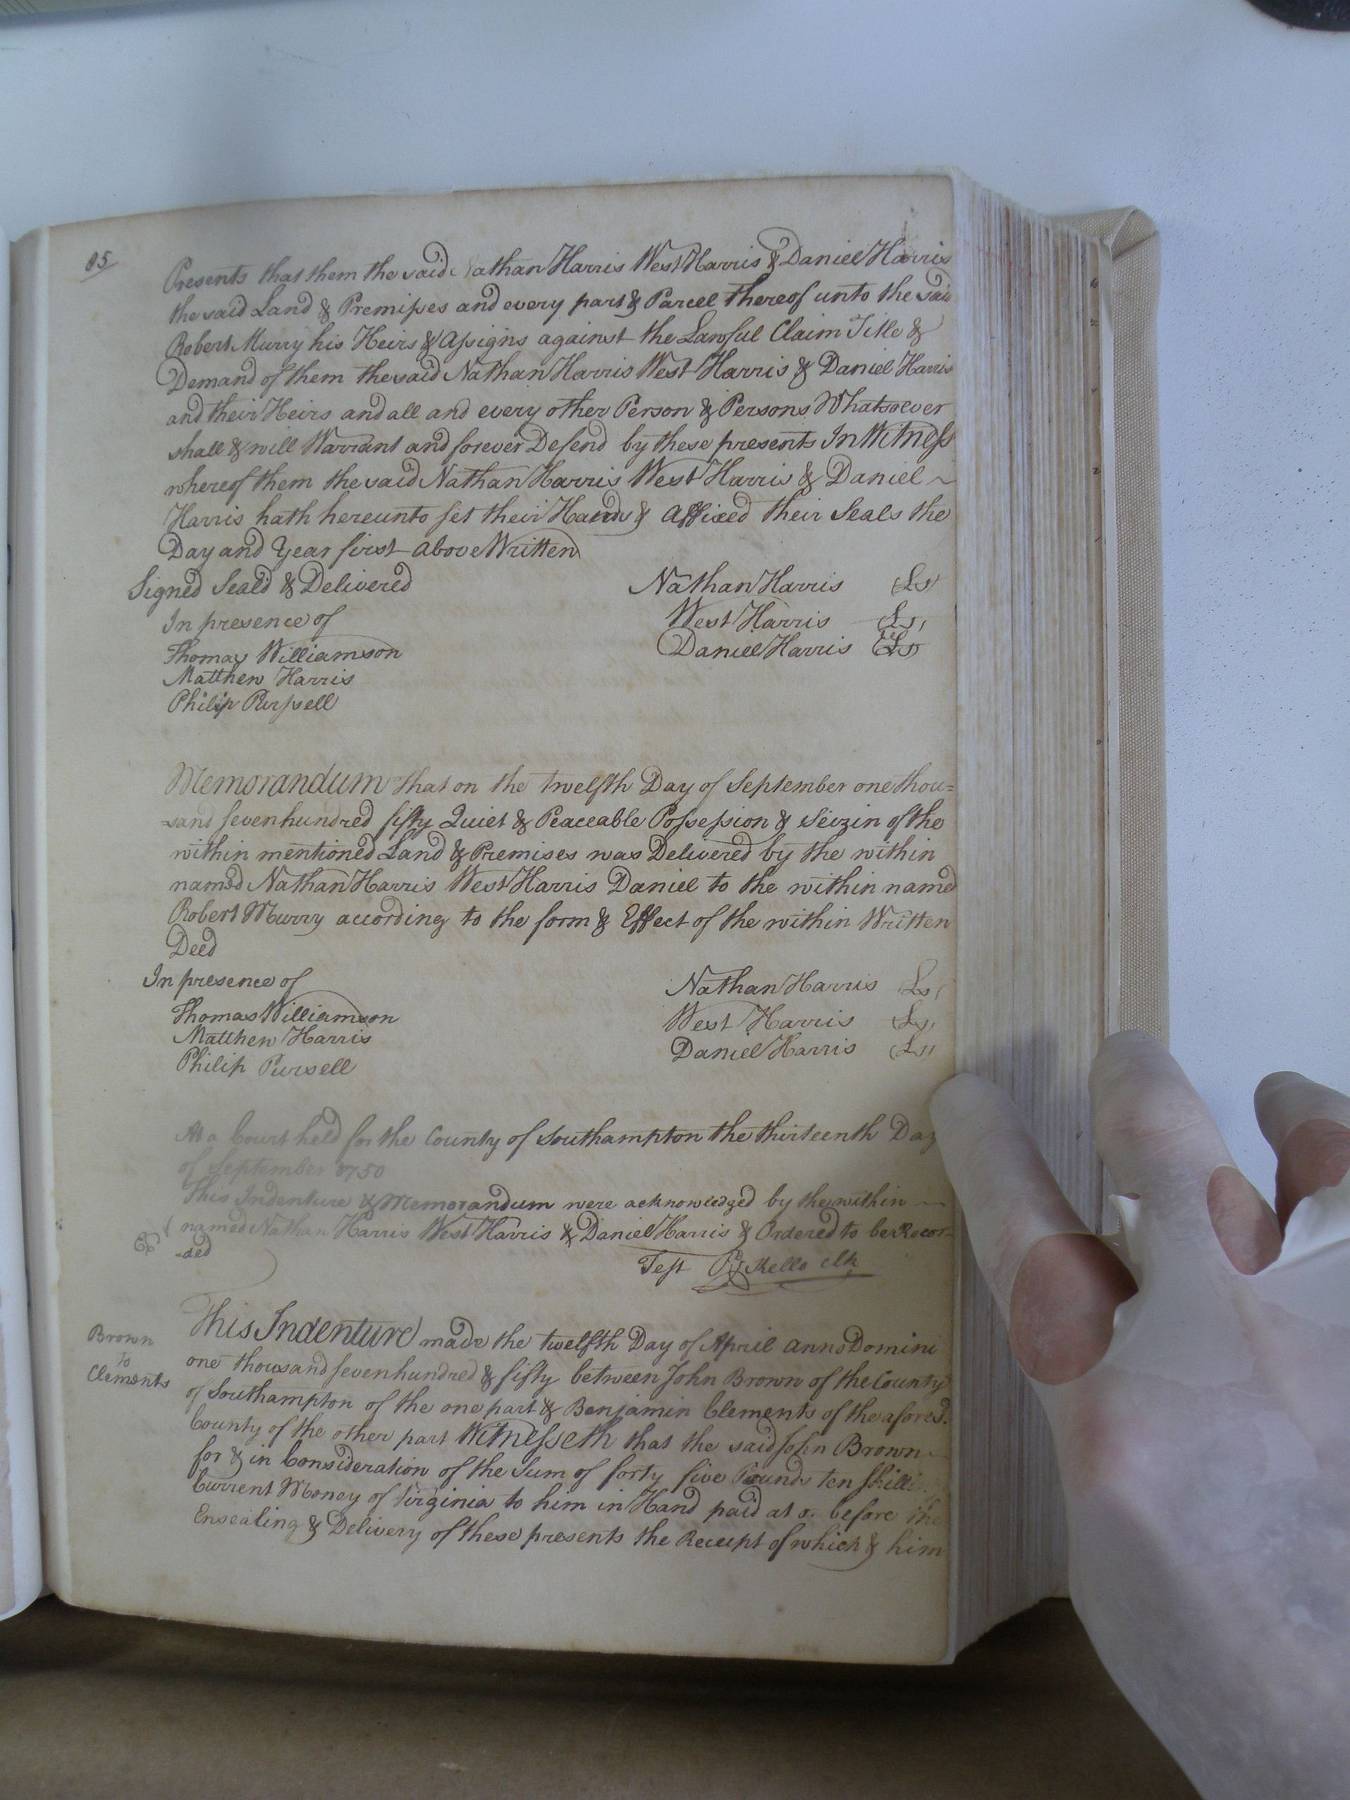 85
Presents that them the said Nathan Harris West Harris & Daniel Harris
the said Land & Premisses and every part & Parcel thereof unto the said
Robert Murry his Heirs & Assigns against the Lawful Claim Title &
Demand of them the said Nathan Harris West Harris & Daniel Harris
and their Heirs and all and every other Person & Persons Whatsoever
shall & will Warrant and forever Defend by these presents In Witness
whereof them the said Nathan Harris West Harris & Daniel ~
Harris hath hereunto set their Hands & Affixed their Seals the
Day and Year first above Written
Signed Seald & Delivered Nathan Harris (Ls)
In presence of West Harris (Ls)
Thomas Williamson Daniel Harris (Ls)
Matthew Harris
Philip Purssell
Memorandum that on the twelfth Day of September one thou=
=sand seven hundred fifty Quiet & Peaceable Possession & Seizin of the
within mentioned Land & Premises was Delivered by the within
named Nathan Harris West Harris Daniel to the within named
Robert Murry according to the form & Effect of the within Written
Deed
In presence of Nathan Harris Ls
Thomas Williamson West Harris Ls
Matthew Harris Daniel Harris (Ls)
Philip Pursell
At a Court held for the County of Southampton the thirteenth Day
of September 1750
This Indenture & Memorandum were acknowledged by the within ~
named Nathan Harris West Harris & Daniel Harris & Ordered to be Recor-
-ded
Test R Kello Clk
Brown
to
Clements
This Indenture made the twelfth Day of April anno Domini
one thousand seven hundred & fifty between John Brown of the County
of Southampton of the one part & Benjamin Clements of the aforesd.
County of the other part Witnesseth that the said John Brown
for & in Consideration of the Sum of forty five Pounds ten shilli
Current Money of Virginia to him in Hand paid at or before the
Ensealing & Delivery of these presents the Receipt of which & him